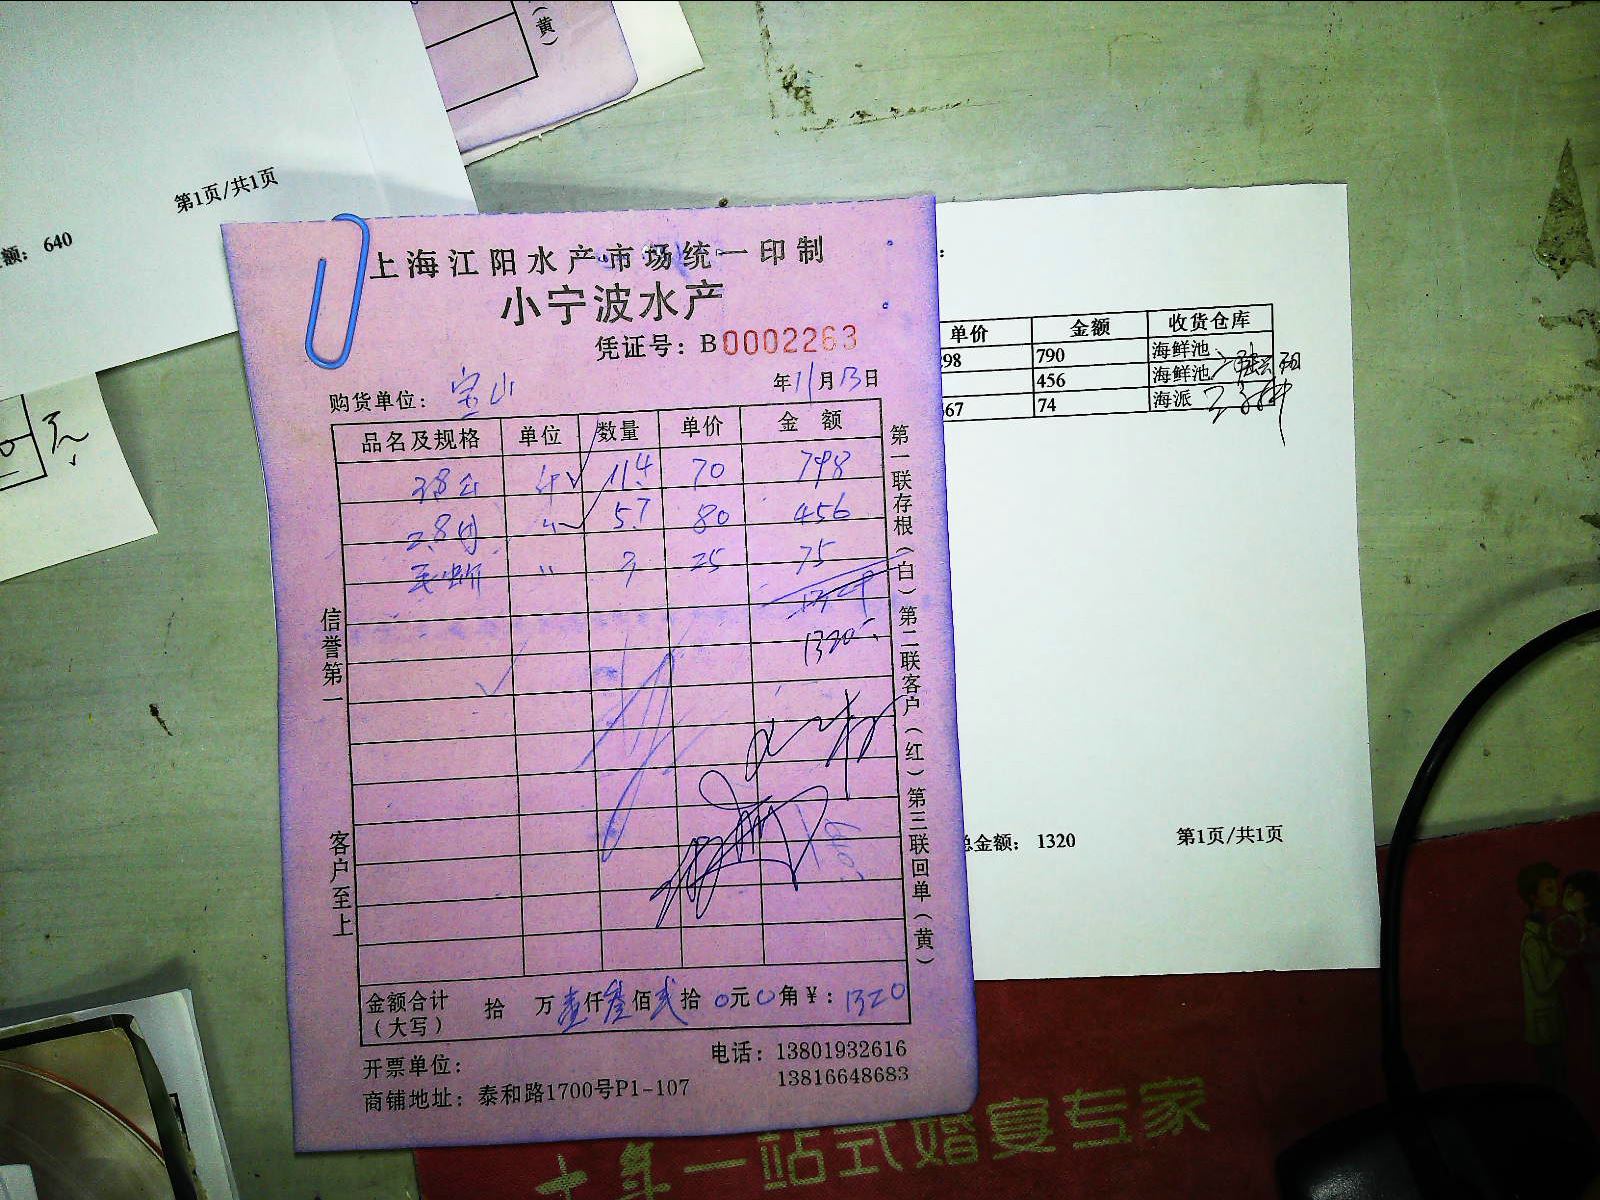 （黄）
第1页/共1页
额： 640
元
上海江阳水产市场统一印制
小宁波水产
凭证号：B0002263
购货单位：宝山
年11月13日
品名及规格 单位 数量 单价 金额
斤 11.4 70 798
2.8 〃 5.7 80 456
〃 3 25 75
1320
金额合计（大写） 拾 万壹仟叁佰贰拾0元0角￥：1320
开票单位：
电话：13801932616
13816648683
商铺地址：泰和路1700号P1-107
信誉第一
客户至上
第一联存根（白）第二联客户（红）第三联回单（黄）
单价 金额 收货仓库
98 790 海鲜池
456 海鲜池
67 74 海派
总金额： 1320
第1页/共1页
十年一站式婚宴专家